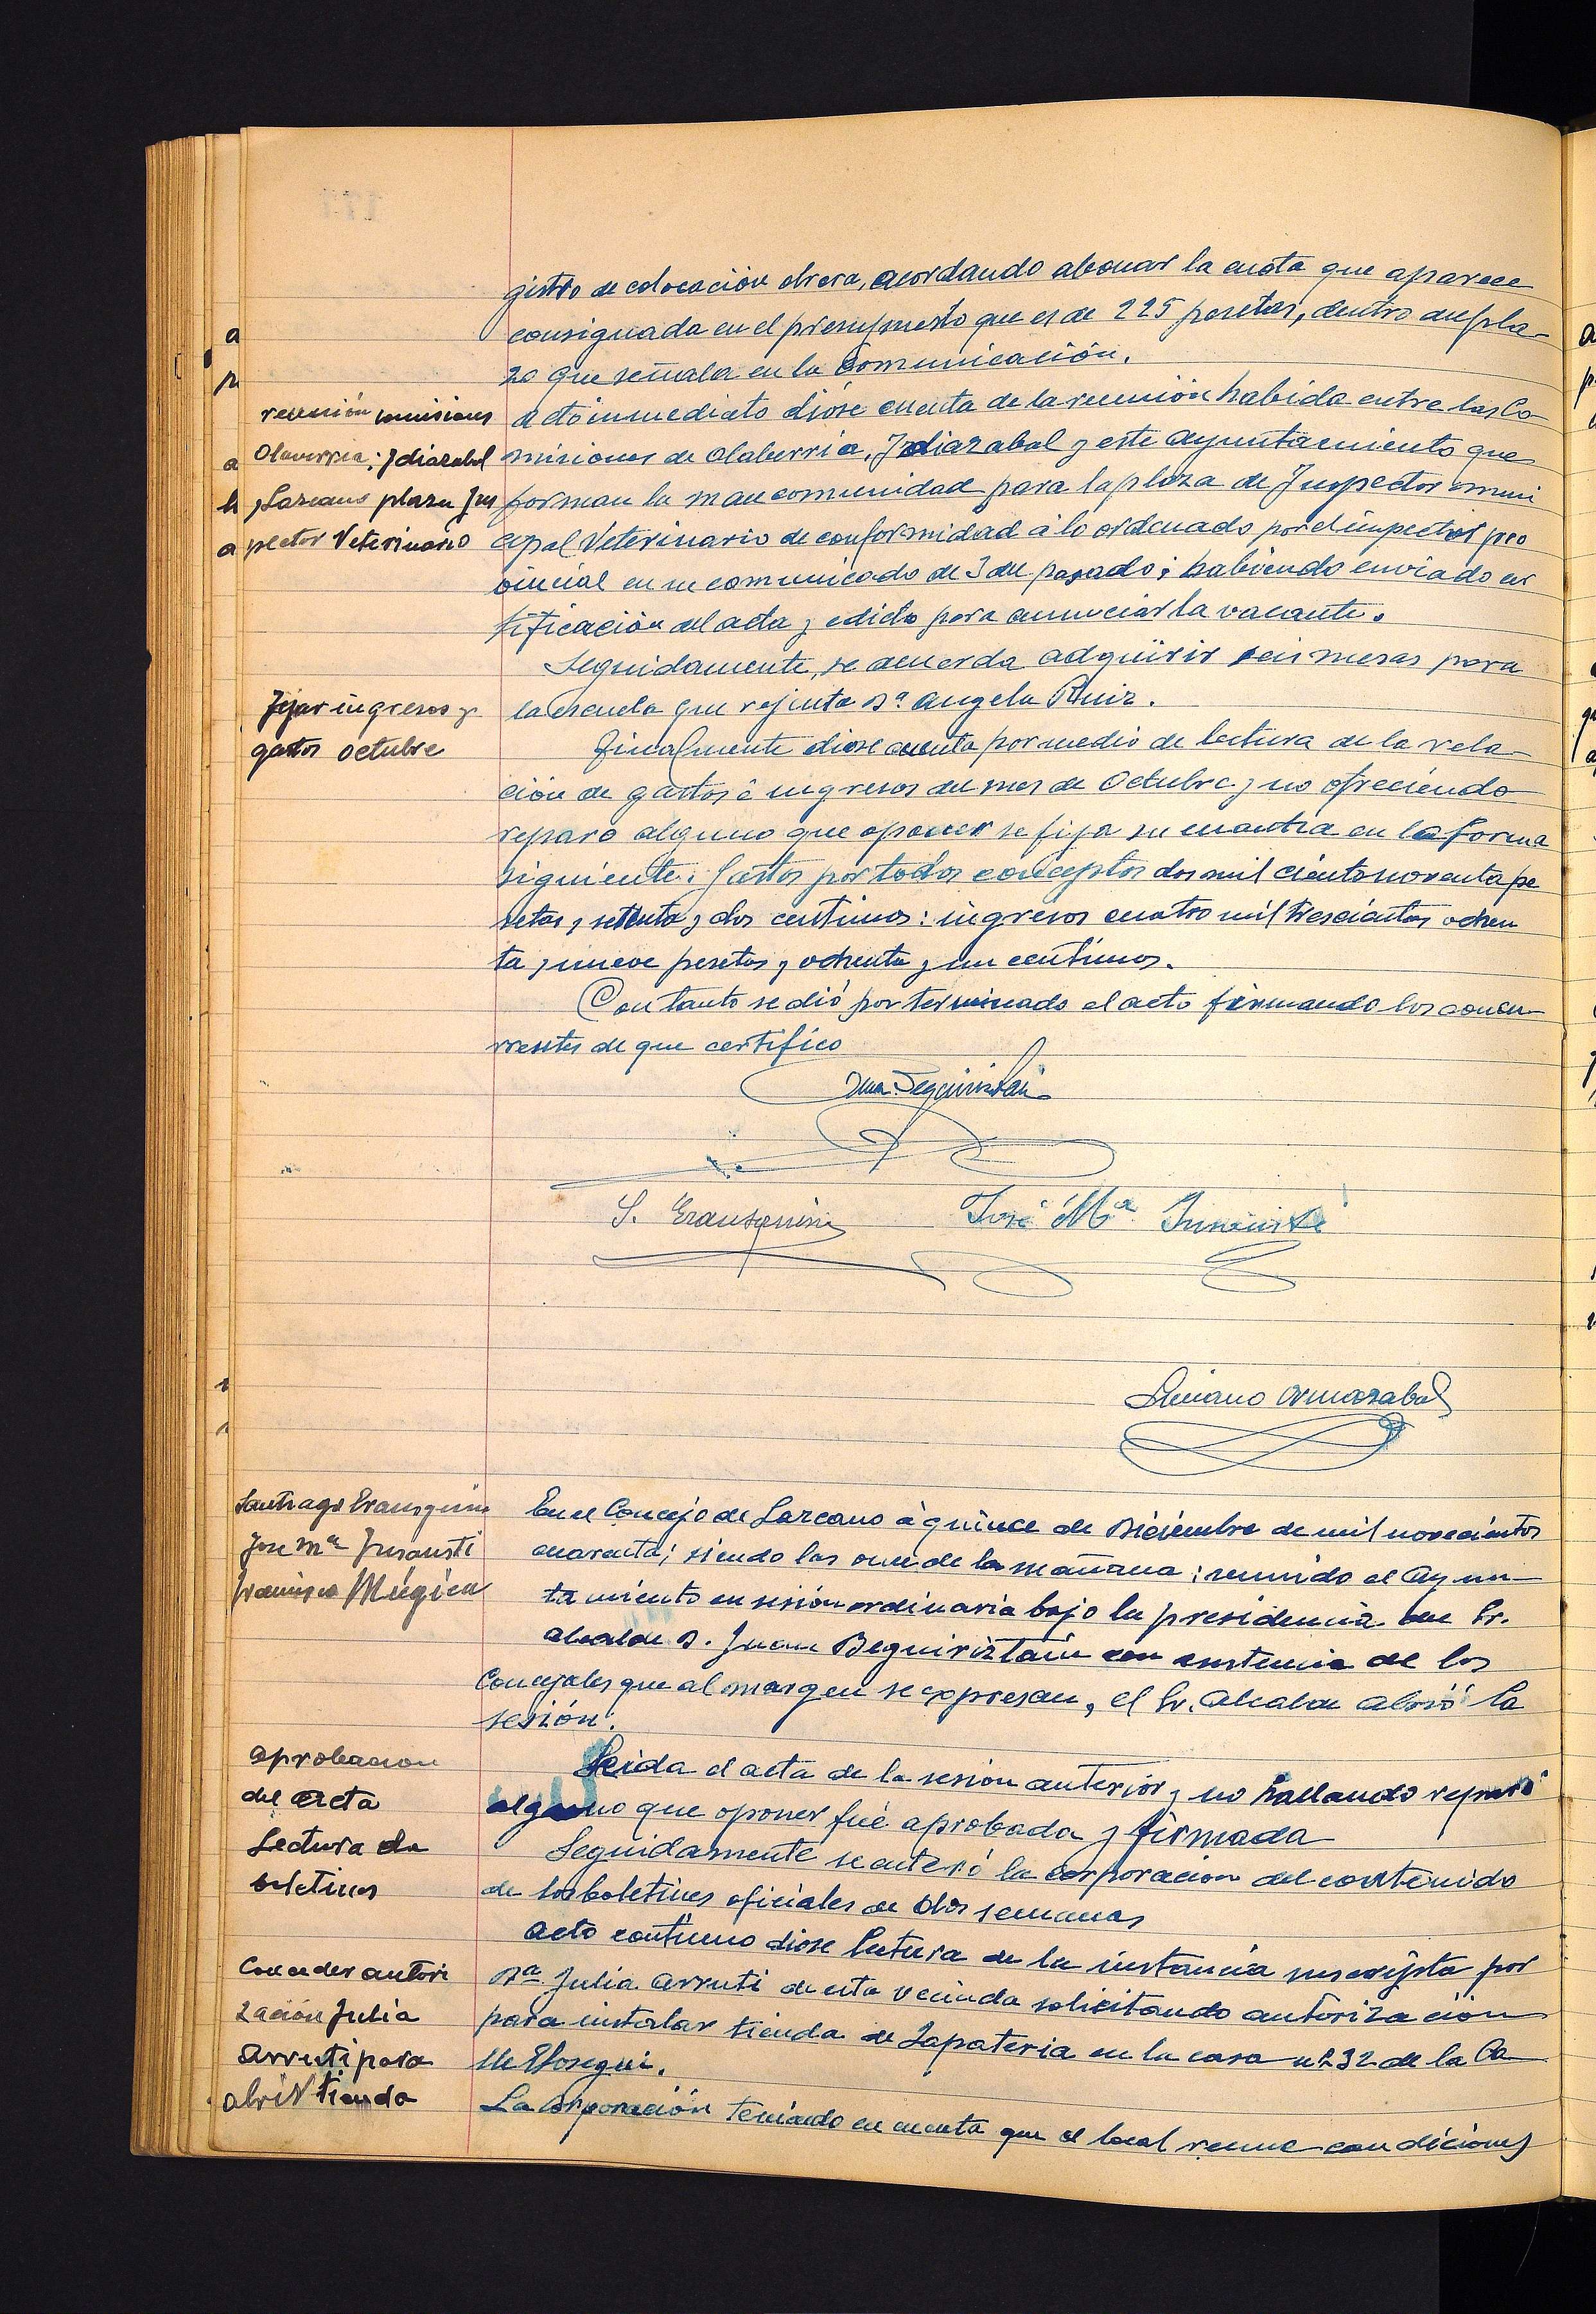 gistro de colocación obrera, acordando abonar la cuota que aparece
consignada en el presupuesto que es de 225 pesetas, dentro del pla-
zo que señala en la comunicación.
reunión comisiones
Olaverria, Idiazabal
y Lazcano plaza Ins
pector Veterinario
Acto inmediato dióse cuenta de la reunión habida entre las Co-
misiones de Olaberria, Idiazabal y este Ayuntamiento que
forman la mancomunidad para la plaza de Inspector muni
cipal Veterinario de conformidad á lo ordenado por el inspector pro
vincial en su comunicado de 3 del pasado; habiendo enviado cer
tificación del acta y edicto para anunciar la vacante.
Seguidamente, se acuerda adquirir seis mesas para
la escuela que rejenta Dª Angela Ruiz.
Fijar ingresos y
gastos octubre
Finalmente diose cuenta por medio de lectura de la rela-
ción de gastos é ingresos del mes de Octubre y no ofreciendo
reparo alguno que oponer se fija su cuantia en la forma
siguiente: Gastos por todos conceptos dos mil ciento noventa pe
setas y setenta y dos centimos: ingresos cuatro mil trescientas ochen
ta y nueve pesetas y ochenta y un centimos.
Con tanto se dió por terminado el acto firmando los concu-
rrentes de que certifico
Juan Beguiristain
S. Erausquin José Mª Insausti
Luciano Ormazabal
Santiago Erausquin
Jose Mª Insausti
Francisco Múgica
En el Concejo de Lazcano á quince de Diciembre de mil novecientos
cuarenta; siendo las once de la mañana; reunido el Ayun-
tamiento en sesión ordinaria bajo la presidencia del Sr.
Alcalde D. Juan Beguiriztain con asistencia de los
Concejales que al margen se expresan, el Sr. Alcalde abrió la
sesión.
aprobacion
del acta
Leida el acta de la sesion anterior y no hallando reparo
alguno que oponer fué aprobada y firmada
Lectura de
boletines
Seguidamente se enteró la corporacion del contenido
de los boletines oficiales de dos semanas
Conceder autori
zación Julia
Arruti para
abrir tienda
Acto continuo diose lectura de la instancia suscripta por
Dª Julia Arruti de esta vecinda solicitando autorización
para instalar tienda de Zapateria en la casa nº 32 de la Ca
lle Elosegui.
La corporación teniendo en cuenta que el local reune condiciones